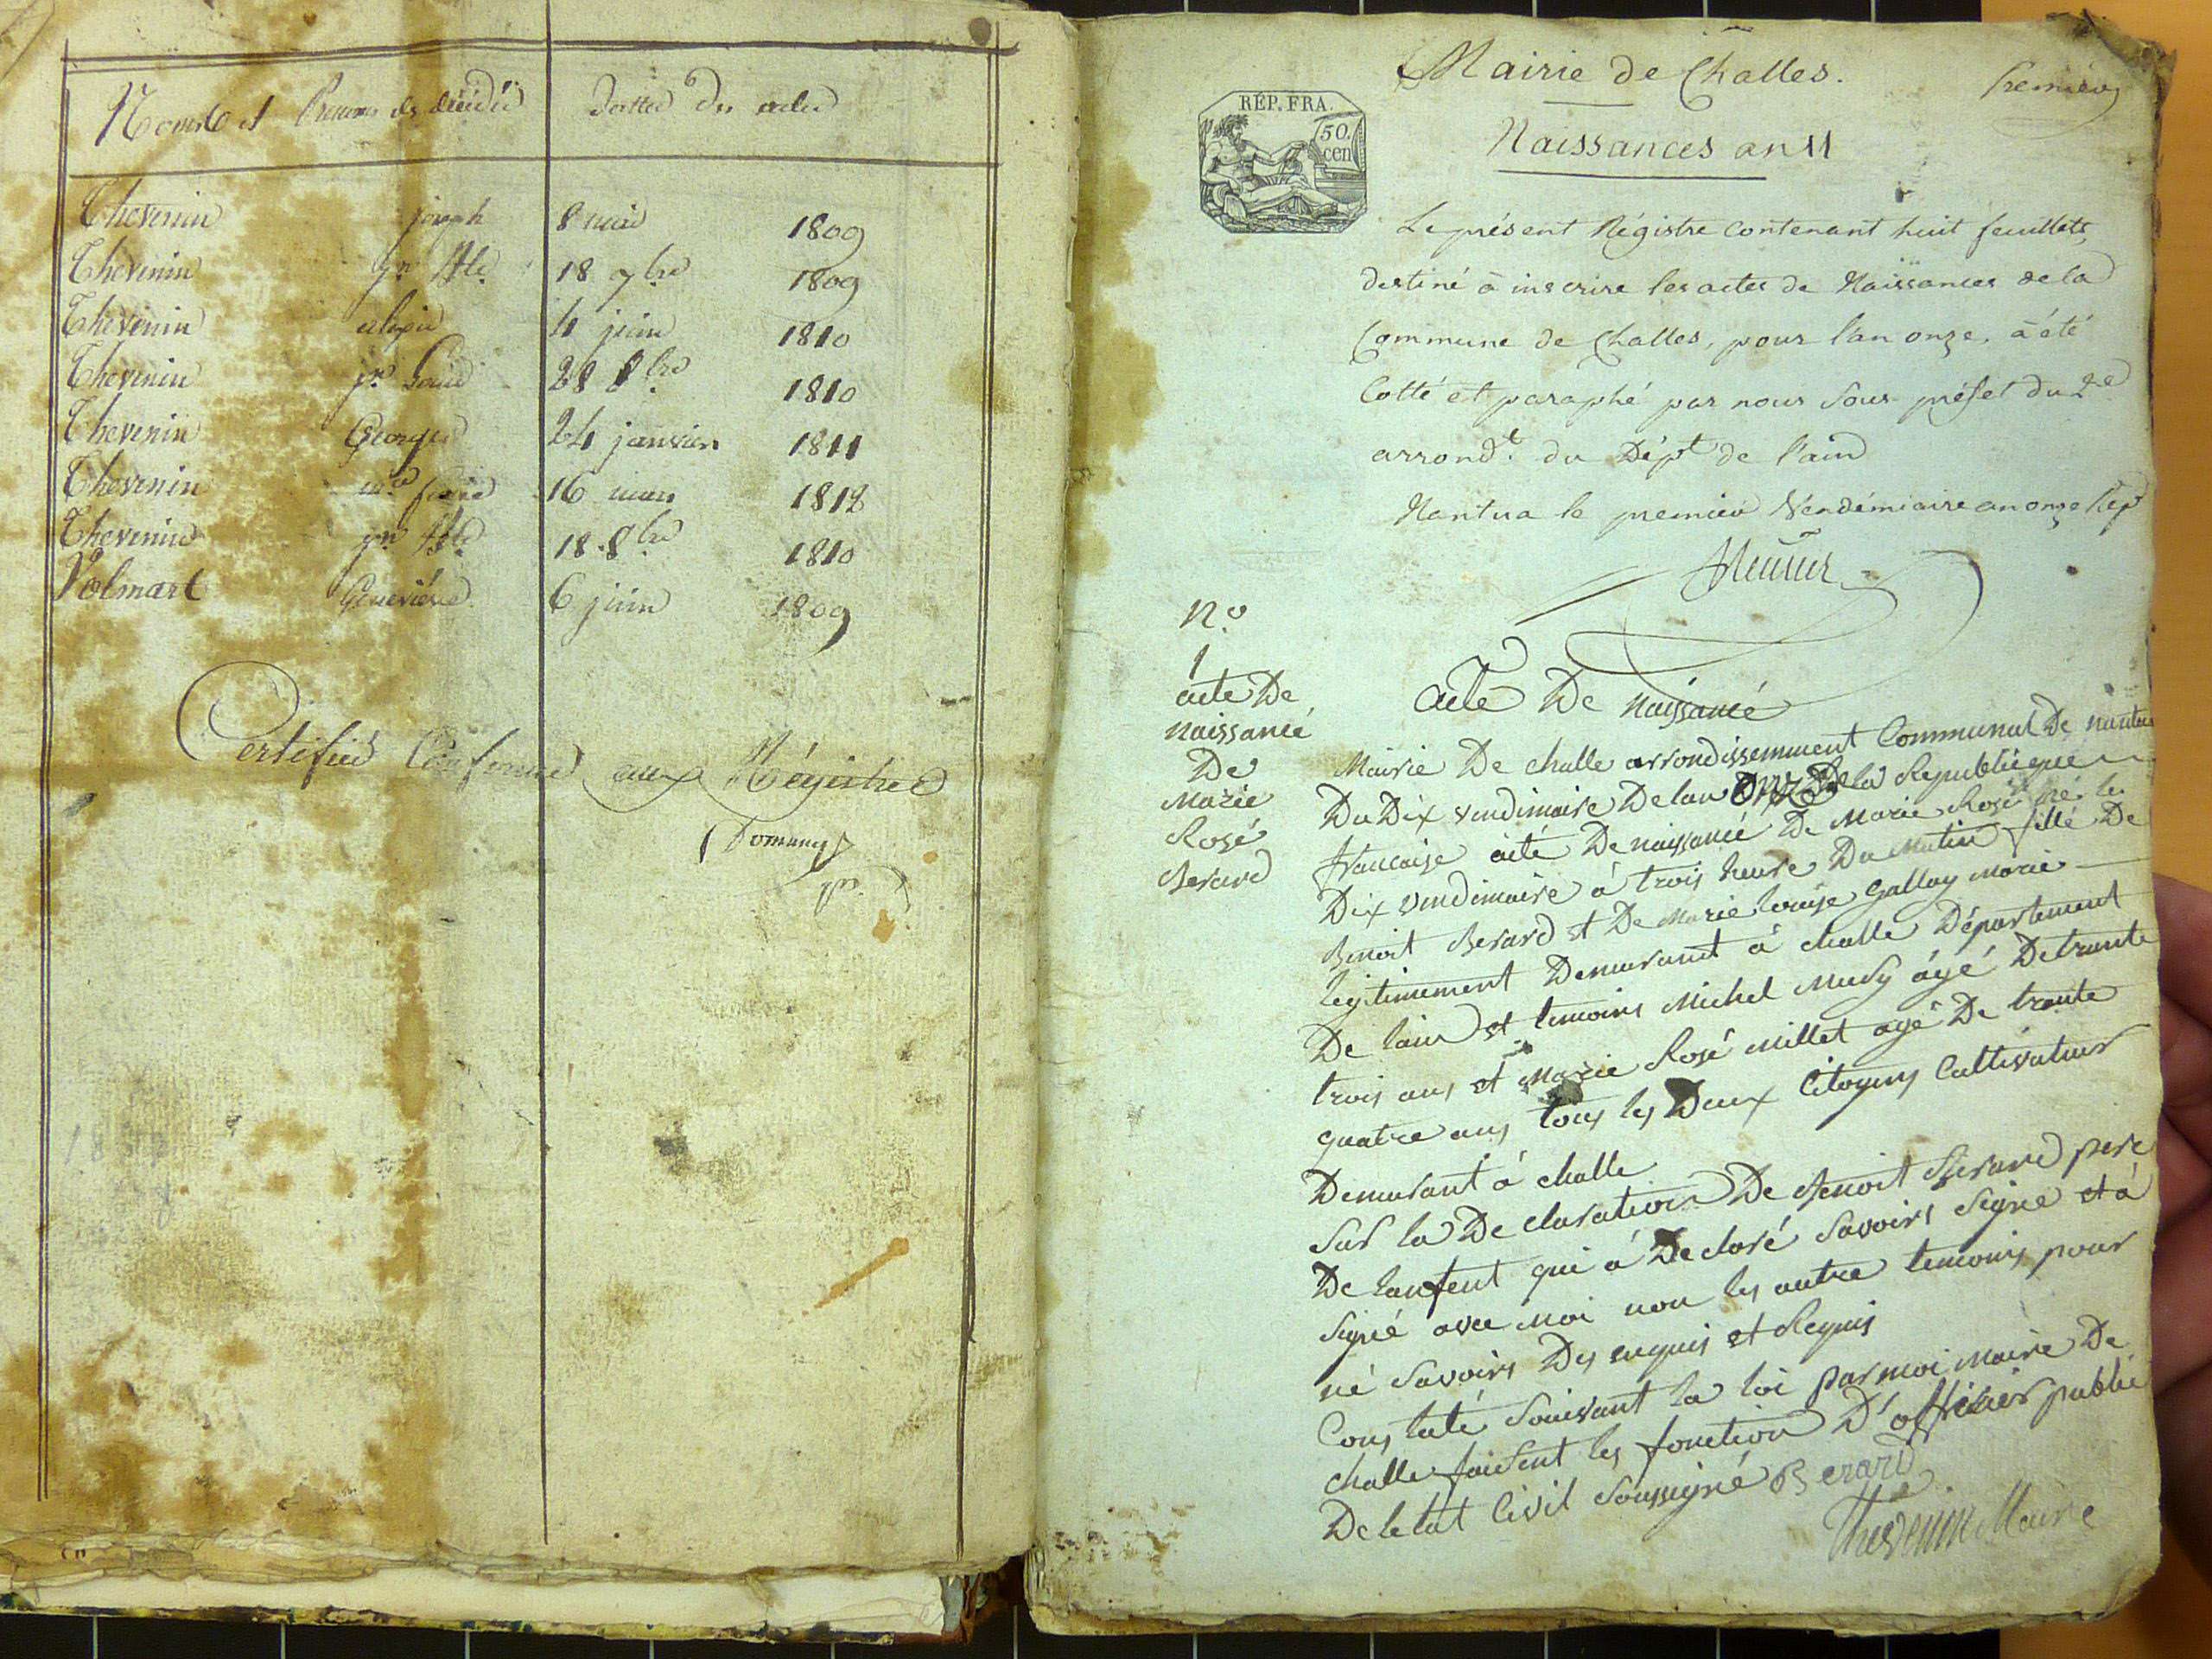 Noms et Prenoms des décédés Dattes des actes
Thevenin joseph 8 mai 1809
Thevenin jn Bte 18 7bre 1809
Thevenin alexis 4 juin 1810
Thevenin jn Louis 28 8bre 1810
Thevenin Georges 24 janvier 1811
Thevenin 16 mars 1812
Thevenin jn Bte 18 8bre 1810
Volmart Geneviéve 6 juin 1809
Certifié Conforme aux Régistres
Mairie de Challes.
Premier
RÉP. FRA.
50.
cen
Naissances an 11
Le présent Régistre contenant huit feuillets,
destiné à inscrire les actes de Naissances de la
Commune de Challes, pour l'an onze, à été
Cotté et paraphé par nous Sous-préfet du 2e
arrondt. du Dépt de l'ain
Nantua le premier Vendémiaire an onze Rep
N.o
1
acte De
naissancé
De
Marie
Rosé
Berard
acte De naissancé
Mairie De challe arrondissemment Communal De nantua
Du Dix vendimaire De lan onze De la Republicque
francaise acté De naissancé De Marie Rosé né le
Dix vendimaire à trois heure Du Matin fillé De
Benoit Berard et De Marie louise Gallay Marié
legitimement Demurant à challe Département
De lain et temoins Michel Mudy âgé De trante
trois ans et Marie Rosé Millet agé De trante
quatre ans tous les Deux Citoyens Cultivateur
Demurant à challe
Sur la De claration De Benoit Berard pere
De lanfent qui à De claré Savoirs Signé et à
Signé avec Moi non les autre temoins pour
né Savoirs Des enquis et Requis
Cons taté Souivant la loi par moi Maire De
challe faisent les fonction D'officier public
De letat Civil Soussigné Berard
Thevenin Maire